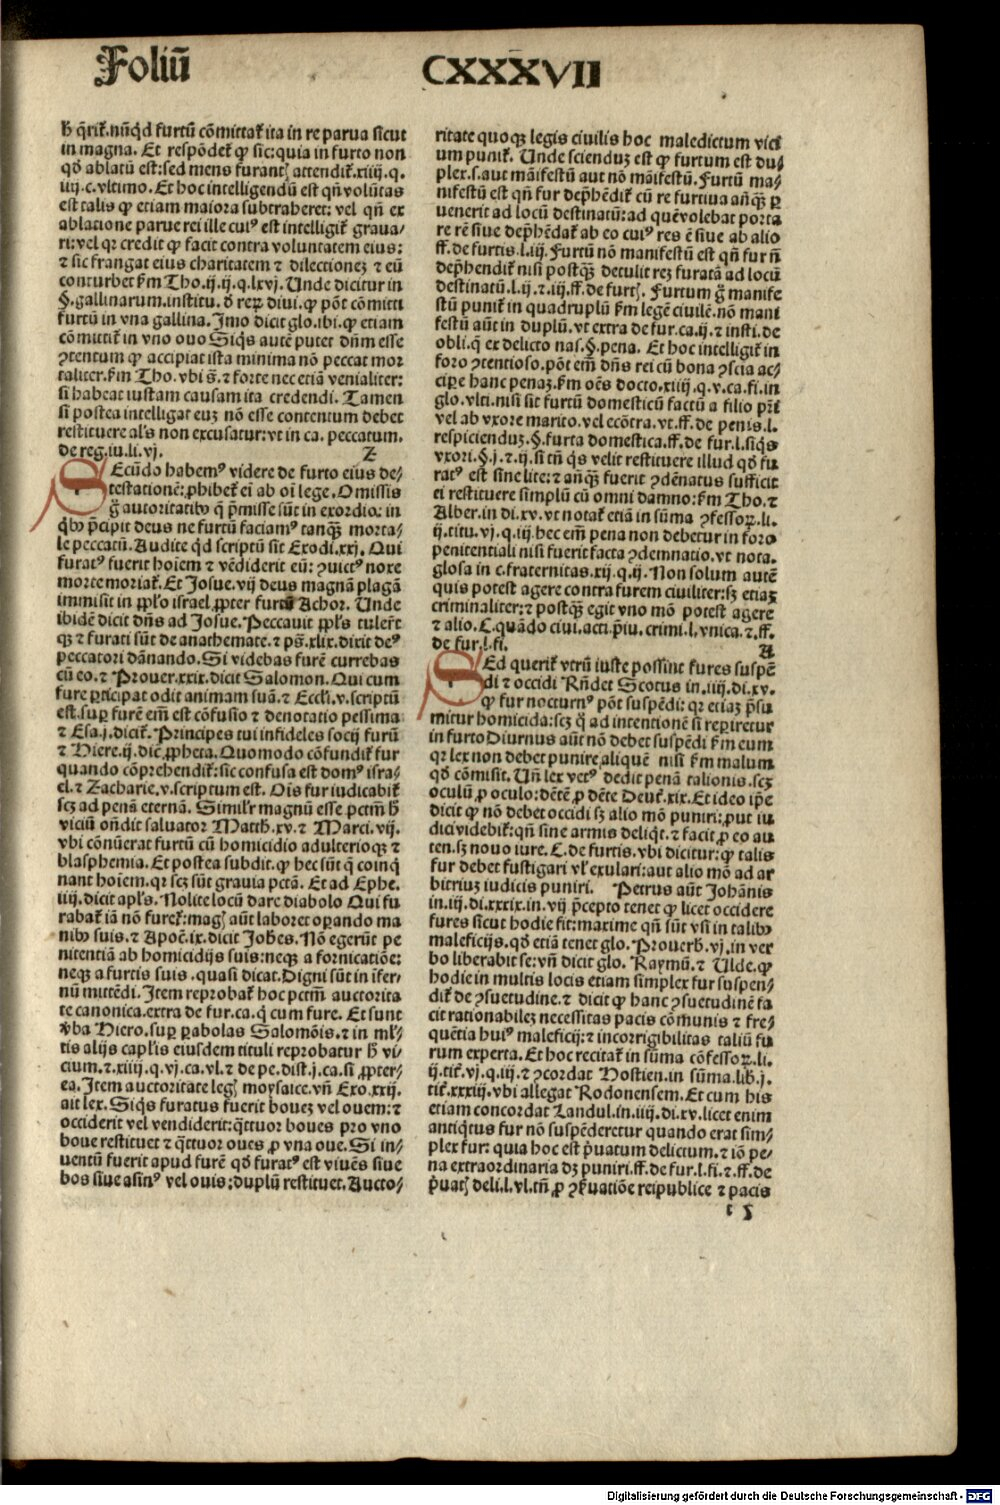 Foliū CXXXVII
ħ q̄rit᷑. nūqͥd furtū cōmittat᷑ ita in re parua sicut
in magna. Et respōdet᷑ ꝙ sic: quia in furto non
qđ ablatū est: sed mens furantꝭ attendit᷑. xiiij. q.
iiij. c. vltimo. Et hoc intelligendū est qn̄ volūtas
est talis ꝙ etiam maiora subtraheret: vel qn̄ ex
ablatione parue rei ille cuiꝰ est intelligit᷑ graua⸗
ri: vel qꝛ credit ꝙ facit contra voluntatem eius:
⁊ sic frangat eius charitatem ⁊ dilectioneꝫ ⁊ eū
conturbet ẜm Tho. ij. ij. q. lxvj. Unde dicitur in
§. gallinarum. institu. đ reꝝ diui. ꝙ pōt cōmitti
furtū in vna gallina. Imo dicit glo. ibi. ꝙ etiam
cōmittit᷑ in vno ouo Siqͥs autē putet dn̄m esse
ꝯtentum ꝙ accipiat ista minima nō peccat mor
taliter. ẜm Tho. vbi s̄. ⁊ forte nec etiā venialiter:
si habeat iustam causam ita credendi. Tamen
si postea intelligat euꝫ nō esse contentum debet
restituere al's non excusatur: vt in ca. peccatum.
de reg. iu. li. vj. Z
SEcūdo habemꝰ videre de furto eius de⸗
testationē: ꝓhibet᷑ ei ab oī lege. Omissis
g̊ autoritatibꝰ q̄ p̄misse sūt in exordio: in
qͥbꝰ p̄cipit deus ne furtū faciamꝰ tanqꝫ morta⸗
le peccatū. Audite qͥd scriptū sit Exodi. xxj. Qui
furatꝰ fuerit hoīem ⁊ vēdiderit eū: ꝯuictꝰ noxe
morte moriat᷑. Et Josue. vij deus magnā plagā
immisit in ꝓp̄lo israel. ꝓpter furtū Achor. Unde
ibidē dicit dn̄s ad Josue. Peccauit ꝓpl's tuler̄t
qꝫ ⁊ furati sūt de anathemate. ⁊ pꝭ. xlix. dixit deꝰ
peccatori dānando. Si videbas furē currebas
cū eo. ⁊ Prouer. xxix. dicit Salomon. Qui cum
fure ꝑticipat odit animam suā. ⁊ Eccli. v. scriptū
est. suꝑ furē em̄ est cōfusio ⁊ denotatio pessima
⁊ Esa. j. dicit᷑. Principes tui infideles socij furū
⁊ Hiere. ij. dic̄ ꝓpheta. Quomodo cōfundit᷑ fur
quando cōprehendit᷑: sic confusa est domꝰ isra⸗
el. ⁊ Zacharie. v. scriptum est. Ois fur iudicabit᷑
scꝫ ad penā eternā. Simil'r magnū esse pctm̄ ħ
viciū on̄dit saluator Matth. xv. ⁊ Marci. vij.
vbi cōnūerat furtū cū homicidio adulterioqꝫ ⁊
blasphemia. Et postea subdit. ꝙ hec sūt q̄ coinq̄
nant hoīem. qꝛ scꝫ sūt grauia pctā. Et ad Ephe.
iiij. dicit apl's. Nolite locū dare diabolo Qui fu
rabat᷑ iā nō furet᷑: magꝭ aūt laboret oꝑando ma
nibꝰ suis. ⁊ Apoc̄. ix. dicit Joh̄es. Nō egerūt pe
nitentiā ab homicidijs suis: neqꝫ a fornicatiōe:
neqꝫ a furtis suis. quasi dicat. Digni sūt in īfer⸗
nū mittēdi. Item reprobat᷑ hoc pctm̄ auctorita
te canonica. extra de fur. ca. q̄ cum fure. Et sunt
ꝟba Hiero. suꝑ ꝑabolas Salomōis. ⁊ in ml'⸗
tis alijs capl'is eiusdem tituli reprobatur ħ vi⸗
cium. ⁊. xiiij. q. vj. ca. vl. ⁊ de pe. dist. j. ca. si ꝓpter⸗
ea. Item auctoritate legꝭ moysaice. vn̄ Exo. xxij.
ait lex. Siqͥs furatus fuerit boueꝫ vel ouem: ⁊
occiderit vel vendiderit: q̄ttuor boues pro vno
boue restituet ⁊ q̄ttuor oues ꝓ vna oue. Si in⸗
uentū fuerit apud furē qđ furatꝰ est viuēs siue
bos siue asinꝰ vel ouis: duplū restituet. Aucto⸗
ritate quoqꝫ legis ciuilis hoc maledictum vici
um punit᷑. Unde scienduꝫ est ꝙ furtum est du⸗
plex. s. aut māifestū aut nō māifestū. Furtū ma⸗
nifestū est qn̄ fur dep̄hēdit᷑ cū re furtiua anͣqꝫ ꝑ
uenerit ad locū destinatū: ad quē volebat porta
re rē siue dep̄hēdat᷑ ab eo cuiꝰ res ē siue ab alio
ff. de furtis. l. iij. Furtū nō manifestū est qn̄ fur n̄
dep̄hendit᷑ nisi postqꝫ detulit reꝫ furatā ad locū
destinatū. l. ij. ⁊. iij. ff. de furtꝭ. Furtum g̊ manife
stū punit᷑ in quadruplū ẜm legē ciuilē. nō mani
festū aūt in duplū. vt extra de fur. ca. ij. ⁊ insti. de
obli. q̄ ex delicto nas. §. pena. Et hoc intelligit᷑ in
foro ꝯtentioso. pōt em̄ dn̄s rei cū bona ꝯscia ac⸗
cipe hanc penaꝫ. ẜm oēs docto. xiiij. q. v. ca. fi. in
glo. vlti. nisi sit furtū domesticū factū a filio pr̄i
vel ab vxore marito. vel ecōtra. vt. ff. de penis. l.
respiciendūꝫ. §. furta domestica. ff. de fur. l. siqͥs
vxori. §. j. ⁊. ij. si tn̄ qͥs velit restituere illud qđ fu
ratꝰ est sine lite: ⁊ anͣqꝫ fuerit ꝯdēnatus sufficit
ei restituere simplū cū omni damno: ẜm Tho. ⁊
Alber. in di. xv. vt notat᷑ etiā in sūma ꝯfessoꝝ. li.
ij. titu. vj. q. iij. hec em̄ pena non debetur in foro
penitentiali nisi fuerit facta ꝯdemnatio. vt nota.
glosa in c. fraternitas. xij. q. ij. Non solum autē
quis potest agere contra furem ciuiliter: sꝫ etiaꝫ
criminaliter: ⁊ postqꝫ egit vno mō potest agere
⁊ alio. C. quādo ciui. acti. p̄iu. crimi. l. vnica. ⁊. ff.
de fur. l. fi. A
SEd querit᷑ vtrū iuste possint fures suspē
di ⁊ occidi Rn̄det Scotus in. iiij. di. xv.
ꝙ fur nocturnꝰ pōt suspēdi: qꝛ etiaꝫ p̄su
mitur homicida: scꝫ qͥ ad intentionē si reperiretur
in furto Diurnus aūt nō debet suspēdi ẜm eum
qꝛ lex non debet punire aliquē nisi ẜm malum
qđ cōmisit. Un̄ lex vetꝰ dedit penā talionis. scꝫ
oculū ꝓ oculo: dētē ꝓ dēte Deut᷑. xix. Et ideo ip̄e
dicit ꝙ nō debet occidi sꝫ alio mō puniri: ꝓut iu
dici videbit᷑: qn̄ sine armis deliqͥt. ⁊ facit ꝓ eo au
ten. sꝫ nouo iure. C. de furtis. vbi dicitur: ꝙ talis
fur debet fustigari vl' exulari: aut alio mō ad ar
bitriuꝫ iudicis puniri. Petrus aūt Johānis
in. iij. di. xxxix. in. vij p̄cepto tenet ꝙ licet occidere
fures sicut hodie fit: maxime qn̄ sūt vsi in talibꝰ
maleficijs. qđ etiā tenet glo. Prouerb. vj. in ver
bo liberabit se: vn̄ dicit glo. Raymū. ⁊ Ulde. ꝙ
hodie in multis locis etiam simplex fur suspen⸗
dit᷑ de ꝯsuetudine. ⁊ dicit ꝙ hanc ꝯsuetudinē fa
cit rationabileꝫ necessitas pacis cōmunis ⁊ fre⸗
quētia huiꝰ maleficij: ⁊ incorrigibilitas taliū fu
rum experta. Et hoc recitat᷑ in sūma cōfessoꝝ. li.
ij. tit᷑. vj. q. iij. ⁊ ꝯcordat Hostien. in sūma. lib. j.
tit᷑. xxxiij. vbi allegat Rodonensem. Et cum his
etiam concordat Landul. in. iiij. di. xv. licet enim
antiqͥtus fur nō suspēderetur quando erat sim⸗
plex fur: quia hoc est p̄uatum delictum. ⁊ iō pe⸗
na extraordinaria dꝫ puniri. ff. de fur. l. fi. ⁊. ff. de
p̄uatꝭ deli. l. vl. tn̄ ꝓ ꝯẜuatiōe reipublice ⁊ pacis
Digitalisierung gefördert durch die Deutsche Forschungsgemeinschaft - DFG